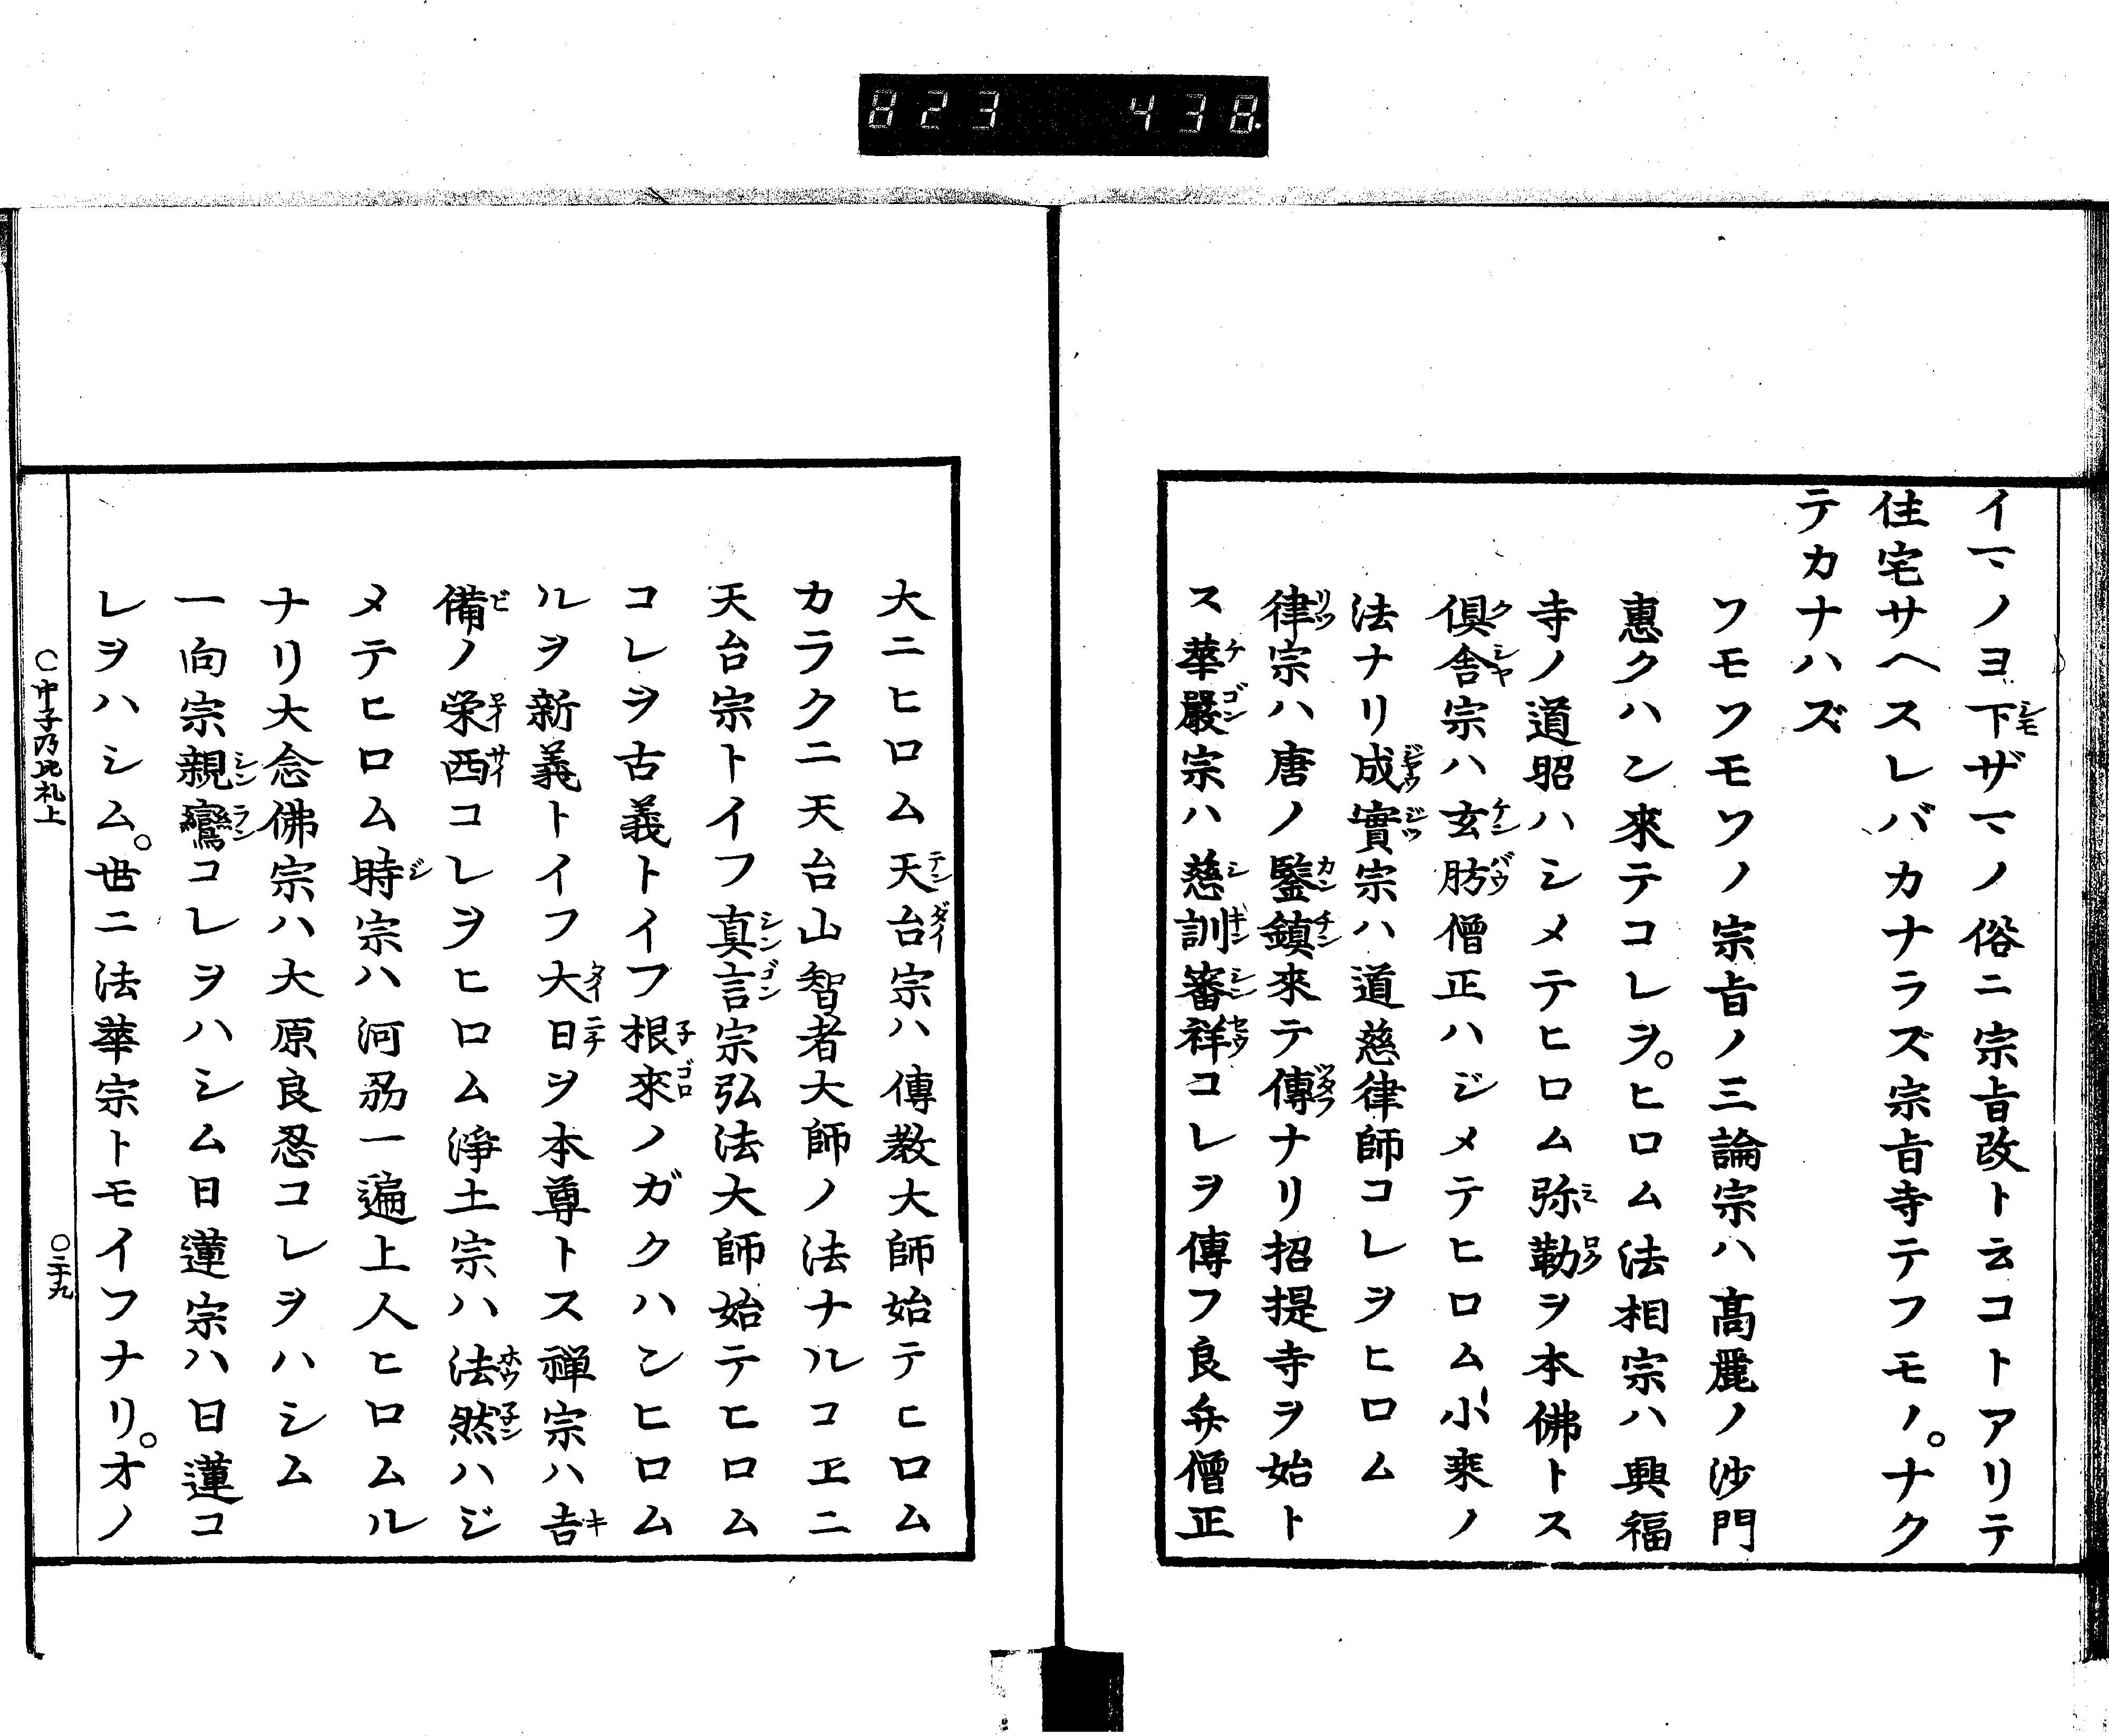 823 438
イマノヨ下ザマノ俗ニ宗旨改ト云コトアリテ
住宅サヘスレバカナラズ宗旨寺テフモノ。ナク
テカナハズ
フモワモワノ宗旨ノ三論宗ハ高麗ノ沙門
惠クハン來テコレヲ。ヒロム法相宗ハ興福
寺ノ道昭ハシメテヒロム弥勒ヲ本佛トス
倶舎宗ハ玄肪僧正ハジメテヒロム小乗ノ
法ナリ成實宗ハ道慈律師コレヲヒロム
律宗ハ唐ノ鑒鎮來テ傳ナリ招提寺ヲ始ト
ス華嚴宗ハ慈訓審祥コレヲ傳フ良弁僧正
大ニヒロム天台宗ハ傳教大師始テヒロム
カラクニ天台山智者大師ノ法ナルコヱニ
天台宗トイフ真言宗弘法大師始テヒロム
コレヲ古義トイフ根來ノガクハンヒロム
ルヲ新義トイフ大日ヲ本尊トス禅宗ハ吉
備ノ栄西コレヲヒロム淨土宗ハ法然ハジ
メテヒロム時宗ハ河刕一遍上人ヒロムル
ナリ大念佛宗ハ大原良忍コレヲハシム
一向宗親鸞コレヲハシム日蓮宗ハ日蓮コ
レヲハシム。世ニ法華宗トモイフナリ。オノ
○中子乃比礼上
○二十九